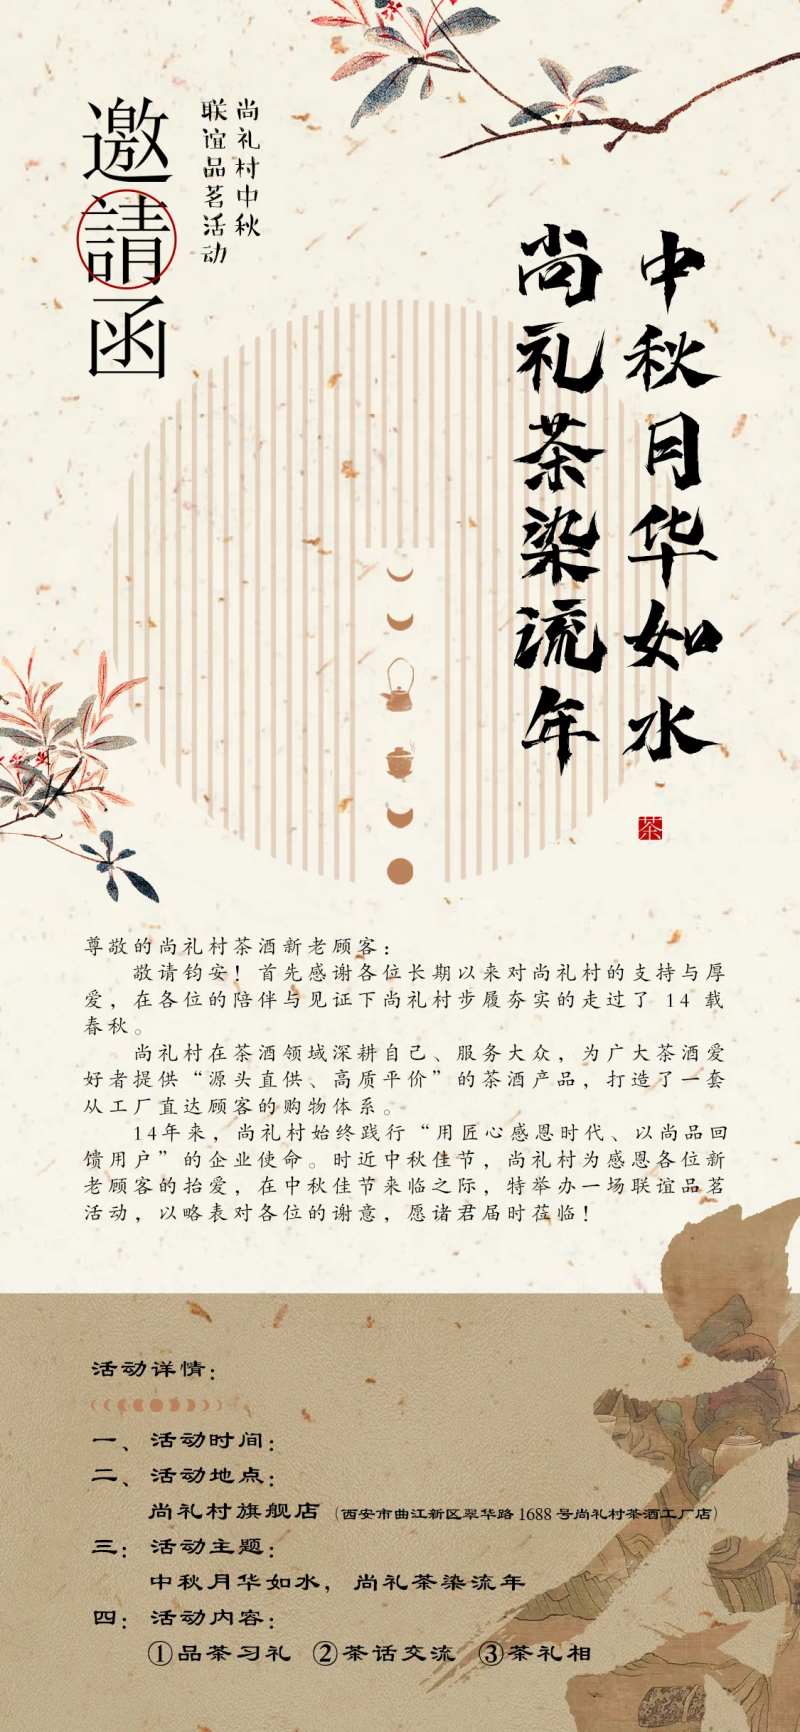 邀請函
尚礼村中秋
联谊品茗活动
中秋月华如水
尚礼茶染流年
茶
尊敬的尚礼村茶酒新老顾客：
敬请钧安！首先感谢各位长期以来对尚礼村的支持与厚
爱，在各位的陪伴与见证下尚礼村步履夯实的走过了 14 载
春秋。
尚礼村在茶酒领域深耕自己、服务大众，为广大茶酒爱
好者提供“源头直供、高质平价”的茶酒产品，打造了一套
从工厂直达顾客的购物体系。
14年来，尚礼村始终践行“用匠心感恩时代、以尚品回
馈用户”的企业使命。时近中秋佳节，尚礼村为感恩各位新
老顾客的抬爱，在中秋佳节来临之际，特举办一场联谊品茗
活动，以略表对各位的谢意，愿诸君届时莅临！
活动详情：
一、活动时间：
二、活动地点：
尚礼村旗舰店（西安市曲江新区翠华路 1688 号尚礼村茶酒工厂店）
三：活动主题：
中秋月华如水，尚礼茶染流年
四：活动内容：
①品茶习礼 ②茶话交流 ③茶礼相